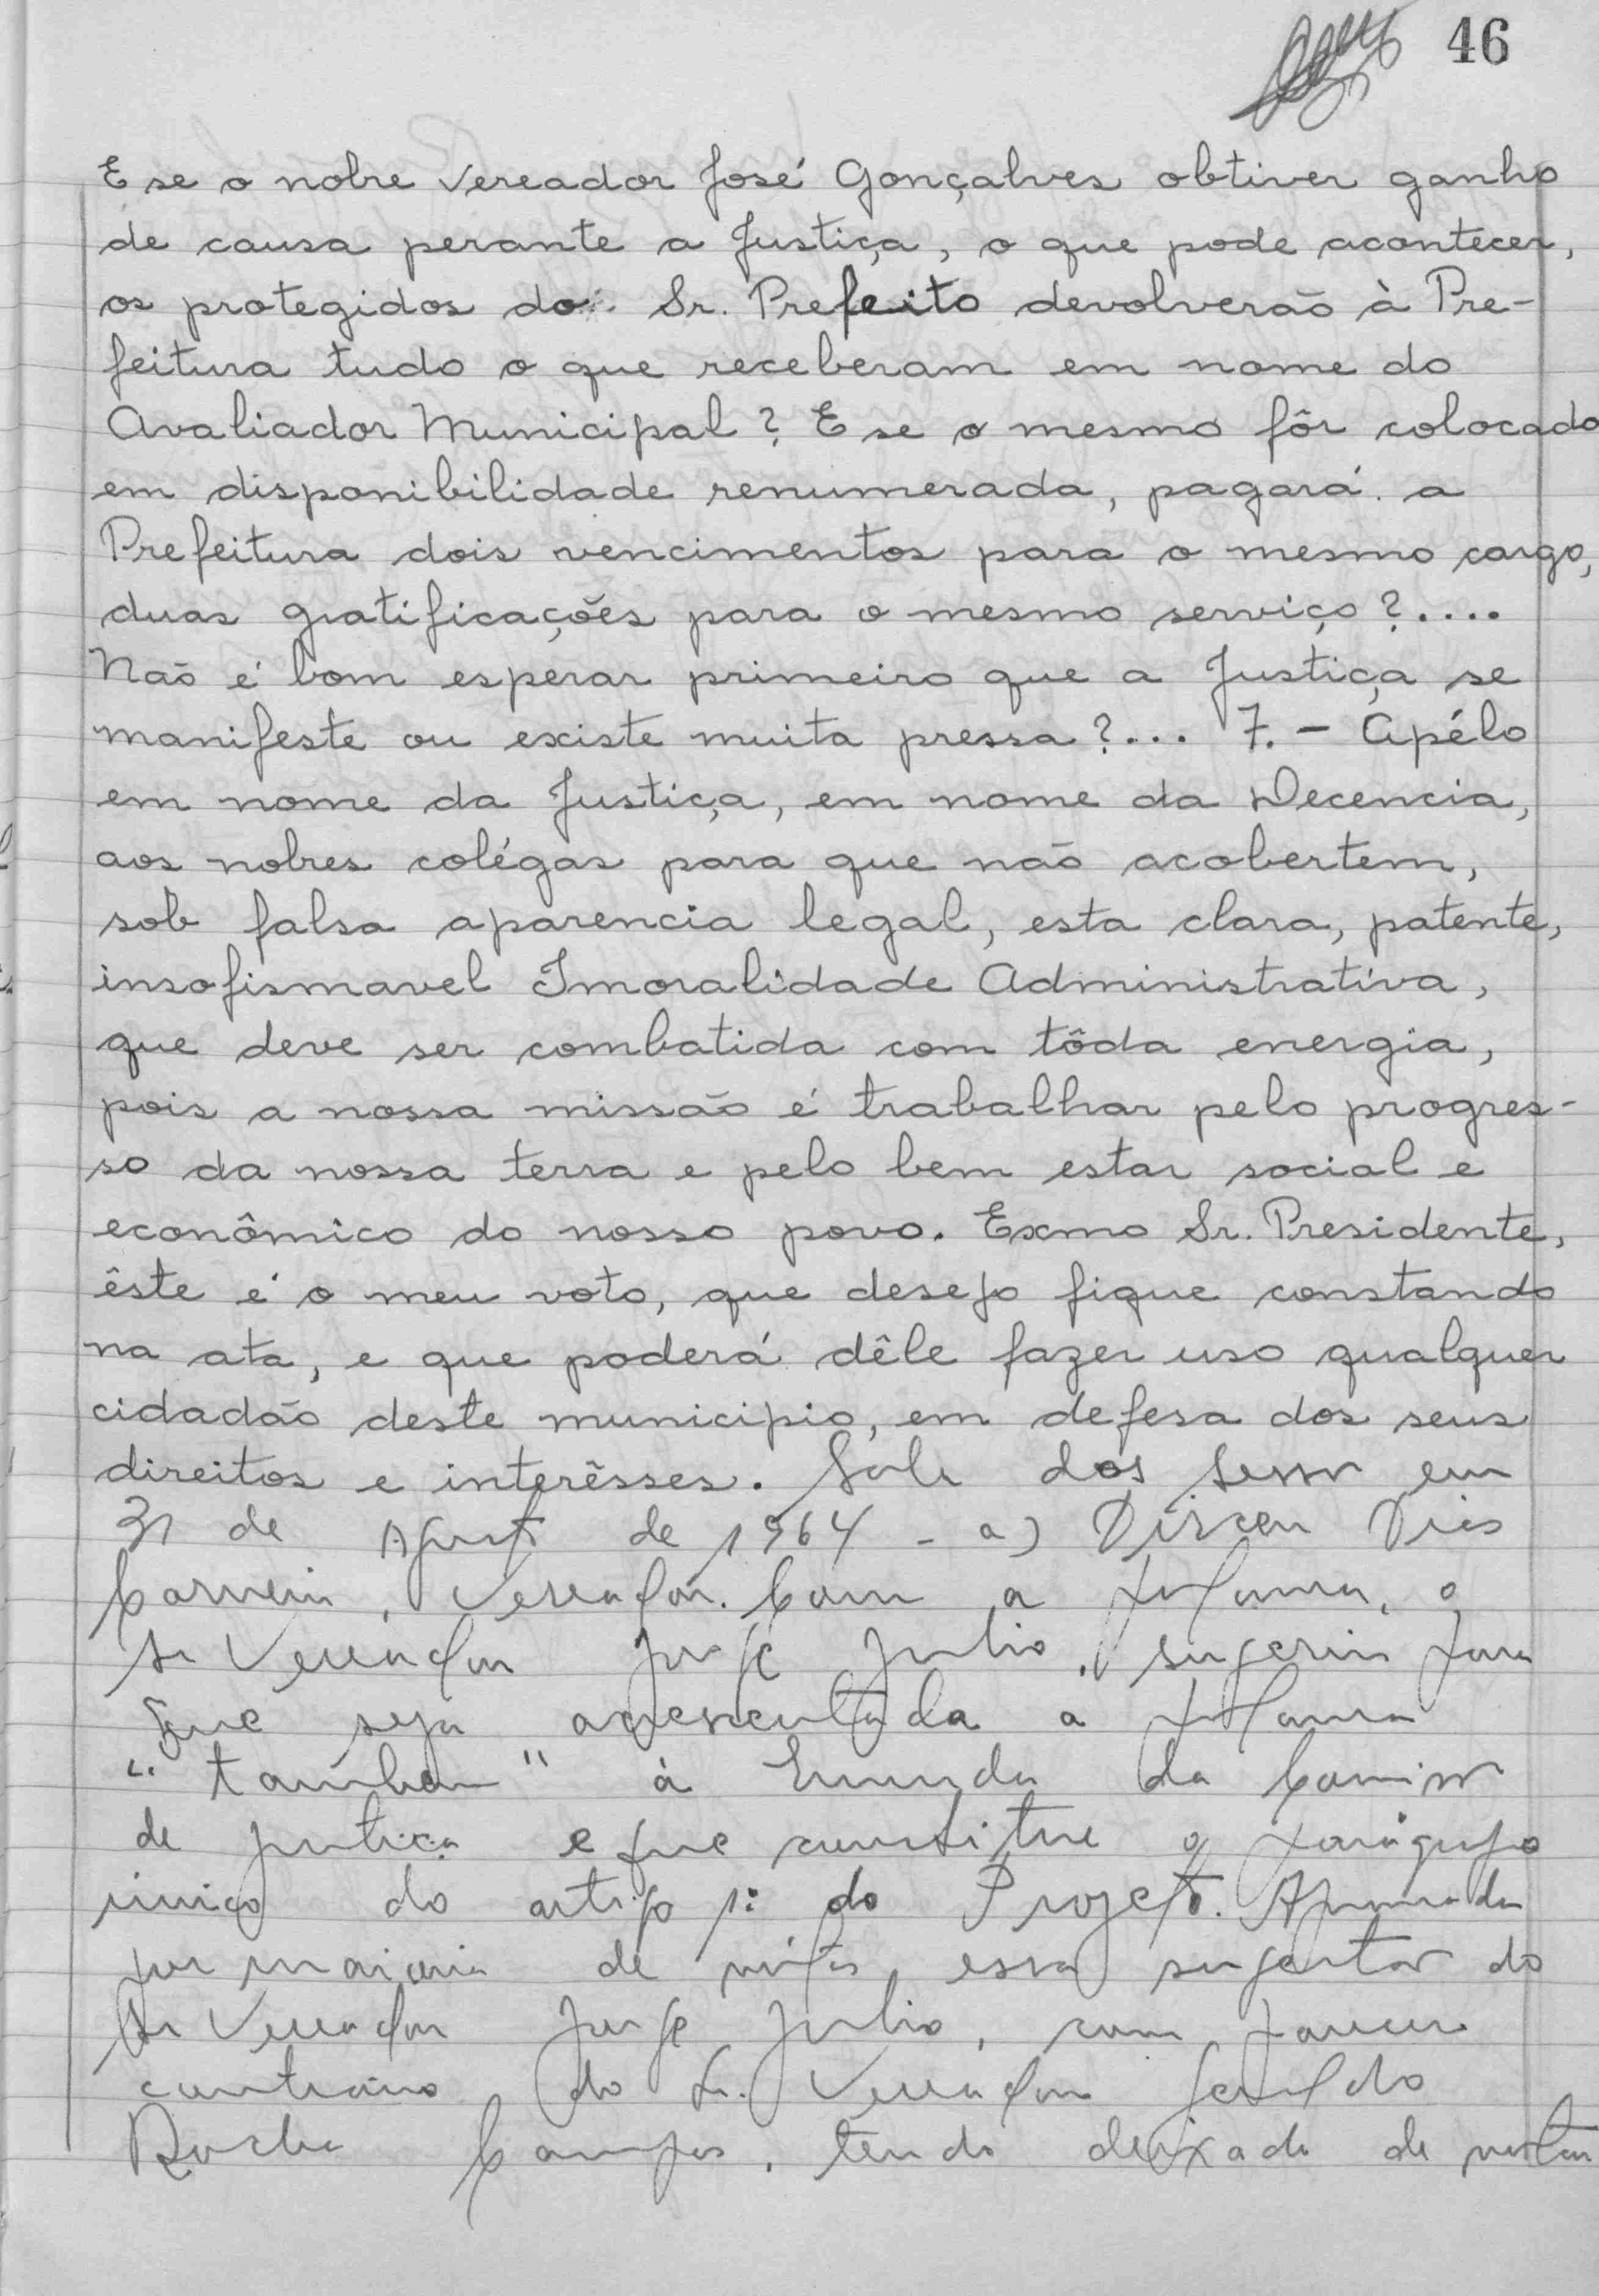 46
E se o nobre Vereador José Gonçalves obtiver ganho
de causa perante a Justiça, o que pode acontecer,
os protegidos do Sr. Prefeito devolverão à Pre-
feitura tudo o que receberam em nome do
Avaliador Municipal? E se o mesmo fôr colocado
em disponibilidade renumerada, pagará a
Prefeitura dois vencimentos para o mesmo cargo,
duas gratificações para o mesmo serviço?....
Não é bom esperar primeiro que a Justiça se
manifeste ou existe muita pressa?... 7.- Apélo
em nome da Justiça, em nome da Decencia,
aos nobres colégas para que não acobertem,
sob falsa aparencia legal, esta clara, patente,
insofismavel Imoralidade Administrativa,
que deve ser combatida com tôda energia,
pois a nossa missão é trabalhar pelo progres-
so da nossa terra e pelo bem estar social e
econômico do nosso povo. Exmo Sr. Presidente,
êste é o meu voto, que desejo fique constando
na ata, e que poderá dêle fazer uso qualquer
cidadão deste municipio, em defesa dos seus
direitos e interêsses. Sala das Sessões em
31 de Agosto de 1964 - a) Dirceu Dias
Carneiro, Vereador. Com a palavra, o
Sr Vereador Jorge Julio, sugeriu para
que seja acrescentada a palavra
"tambem" à Emenda da Comissão
de Justiça e que constitue o parágrafo
único do artigo 1º do Projeto. Aprovada
por maioria de votos, essa sugestão do
Sr Vereador Jorge Julio, com parecer
contrário do Sr. Vereador Geraldo
Rocha Campos, tendo deixado de votar